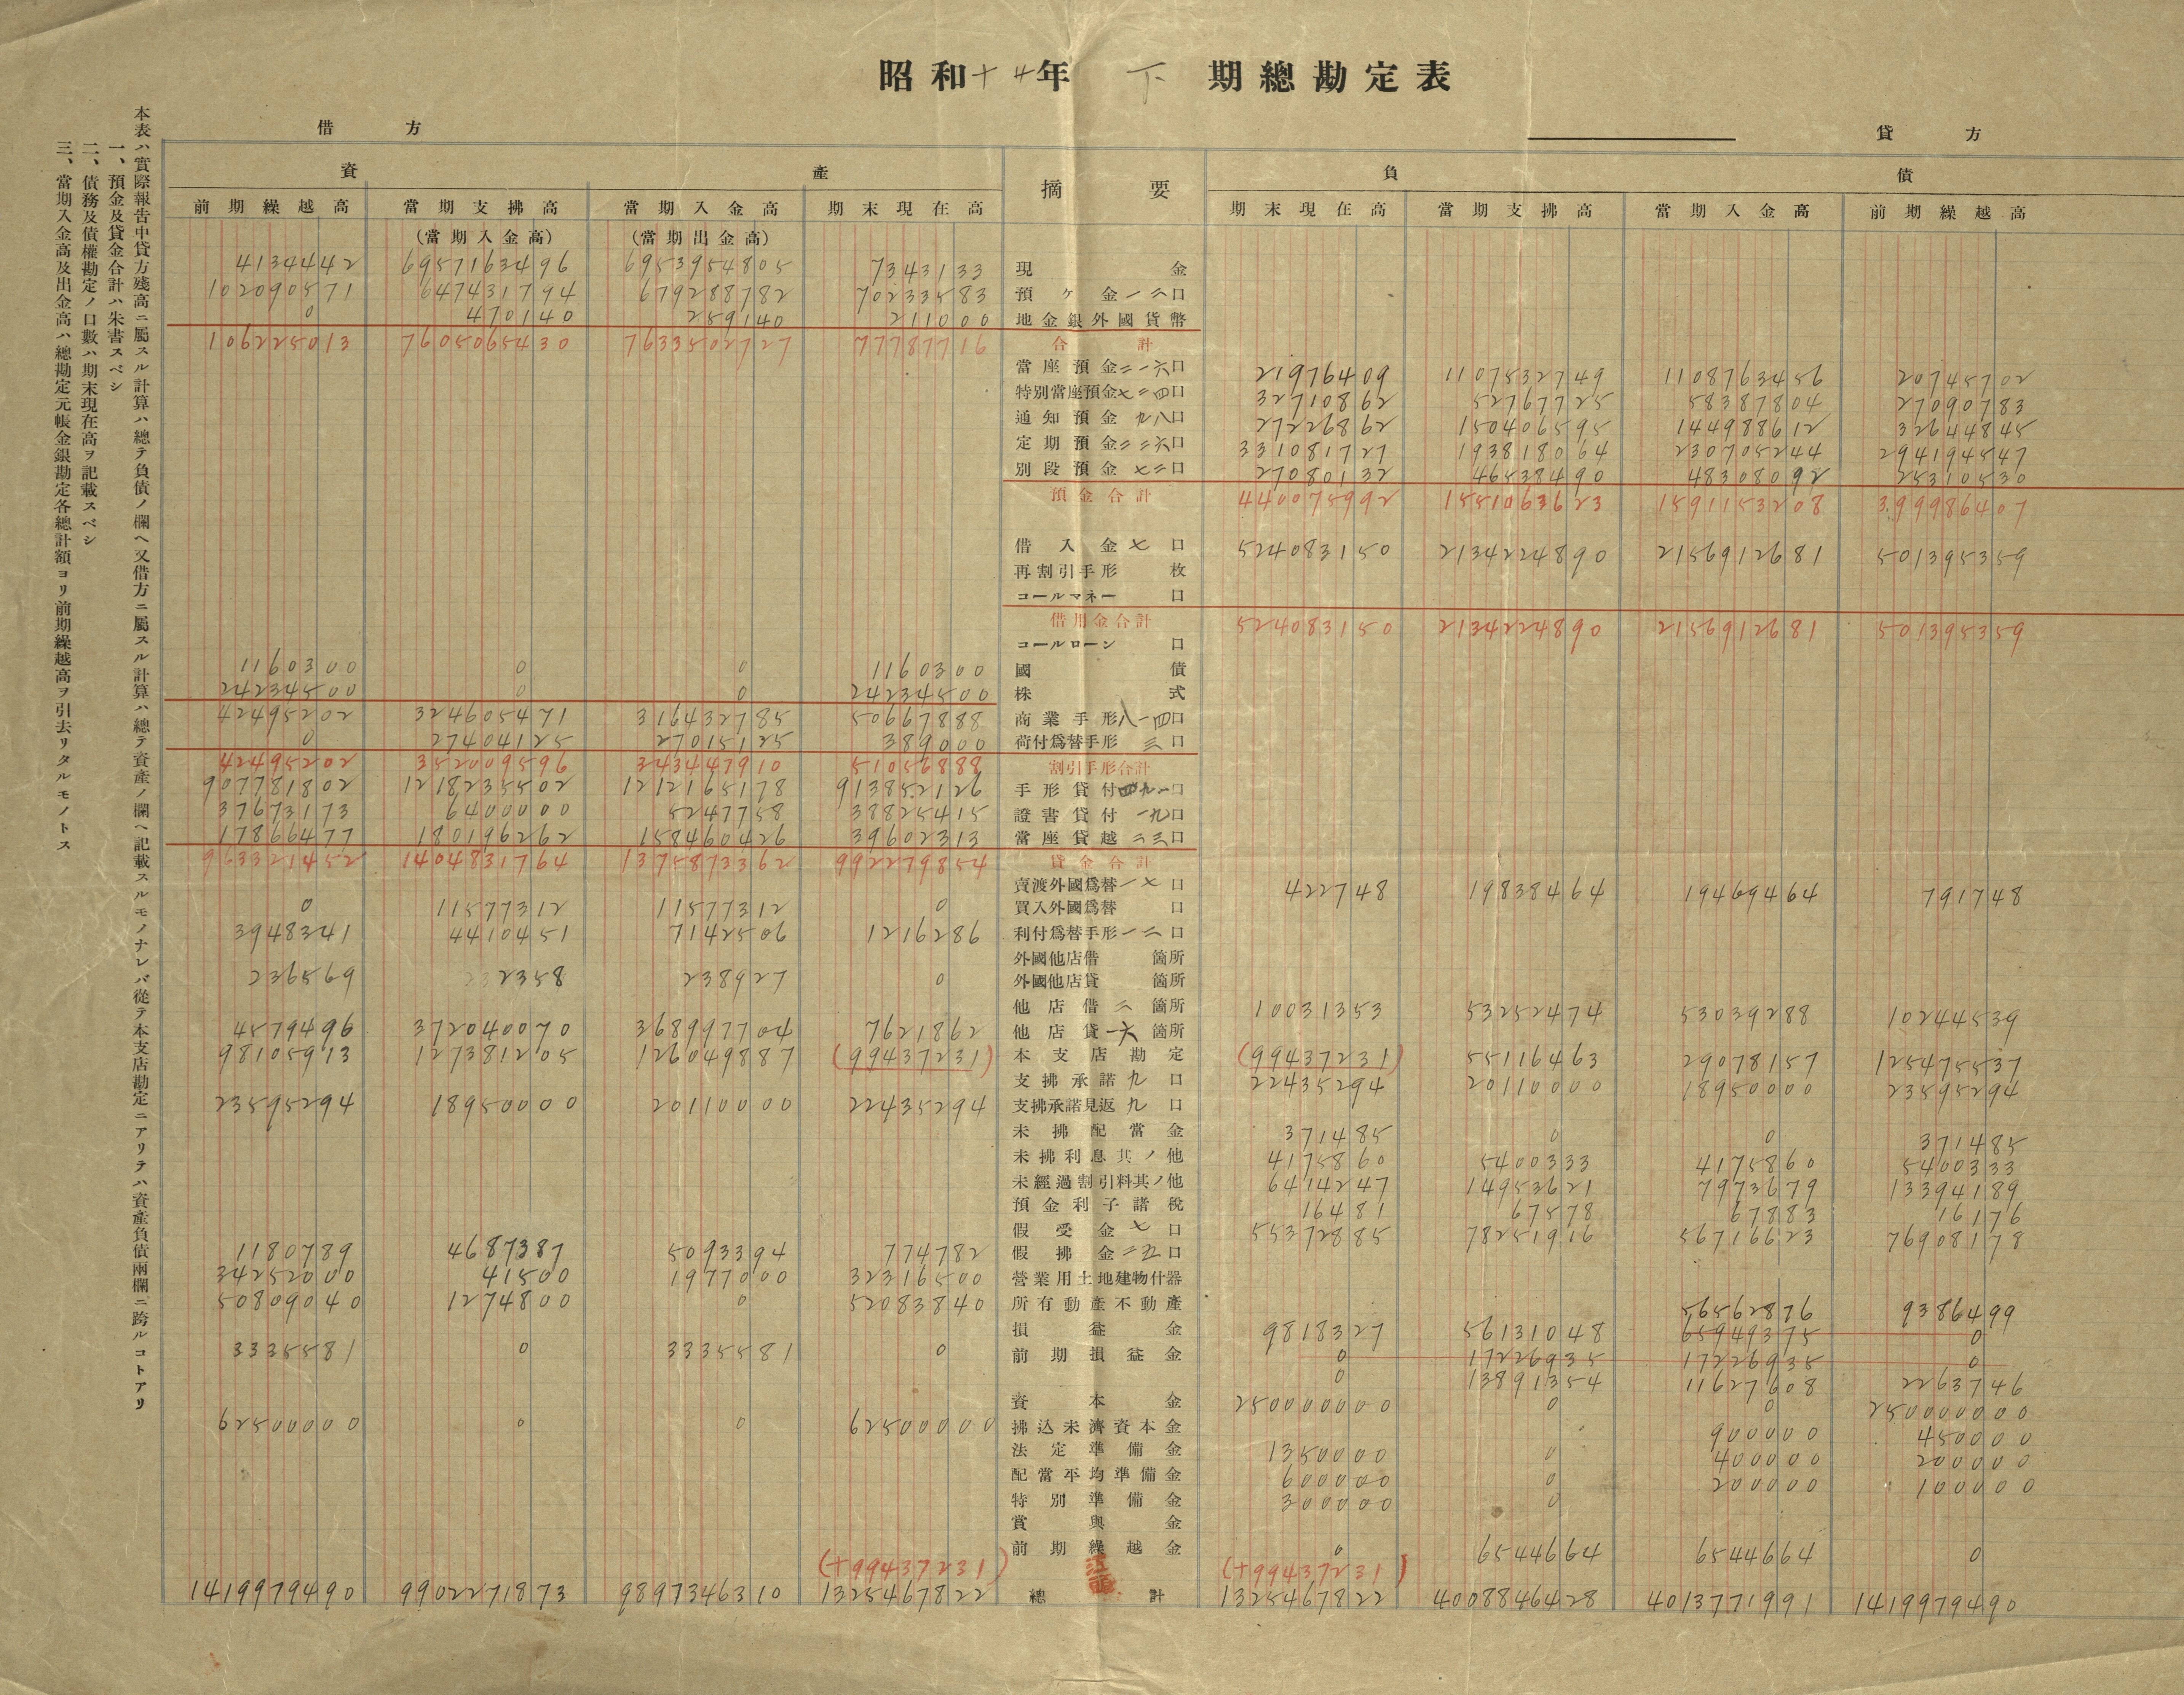 昭和十四年 下 期總勘定表
借方
貸方
資產
摘要
負債
前期繰越高 當期支拂高 當期入金高 期末現在高 期末現在高 當期支拂高 當期入金高 前期繰越高
(當期入金高) (當期出金高)
4134442 6957163496 6953954805 7343133 現金
102090571 647431794 679288782 70233583 預ケ金一二口
0 470140 259140 211000 地金銀外國貨幣
106225013 7605065430 7633502727 77787716 合計
當座預金二一六口 21976409 1107532749 1108763456 20745702
特別當座預金七二四口 32710862 52767725 58387804 27090783
通知預金九八口 27226862 150406595 144988612 32644845
定期預金二二六口 331081727 193818064 230705244 294194547
別段預金七二口 27080132 46538490 48308092 25310530
預金合計 440075992 1551063623 1591153208 399986407
借入金七口 524083150 2134224890 2156912681 501395359
再割引手形 枚
コールマネー 口
借用金合計 524083150 2134224890 2156912681 501395359
コールローン 口
1160300 0 0 1160300 國債
24234500 0 0 24234500 株式
42495202 324605471 316432785 50667888 商業手形八一四口
0 27404125 27015125 389000 荷付爲替手形三口
42495202 352009596 343447910 51056888 割引手形合計
907781802 1218235502 1212165178 913852126 手形貸付四九一口
37673173 6400000 5247758 38825415 證書貸付一九口
17866477 180196262 158460426 39602313 當座貸越二三口
963321452 1404831764 1375873362 992279854 貸金合計
賣渡外國爲替一七口 422748 19838464 19469464 791748
0 11577312 11577312 0 買入外國爲替 口
3948341 4410451 7142506 1216286 利付爲替手形一二口
外國他店借 箇所
236569 2358 238927 0 外國他店貸 箇所
他店借二箇所 10031353 53252474 53039288 10244539
4579496 372040070 368997704 7621862 他店貸一六箇所
98105913 127381205 126049887 (99437231) 本支店勘定 (99437231) 55116463 29078157 125475537
支拂承諾九口 22435294 20110000 18950000 23595294
23595294 18950000 20110000 22435294 支拂承諾見返九口
未拂配當金 371485 0 0 371485
未拂利息其ノ他 4175860 5400333 4175860 5400333
未經過割引料其ノ他 6414247 14953621 7973679 13394189
預金利子諸稅 16481 67578 67883 16176
假受金七口 55372885 78251916 56716623 76908178
1180789 4687387 5093394 774782 假拂金二五口
34252000 41500 1977000 32316500 營業用土地建物什器
50809040 1274800 0 52083840 所有動產不動產
56562876 9386499
損益金 9818327 56131048 65949375 0
3335581 0 3335581 0 前期損益金 0 17226935 17226935 0
0 13891354 11627608 2263746
資本金 250000000 0 0 250000000
62500000 0 0 62500000 拂込未濟資本金
法定準備金 1350000 0 900000 450000
配當平均準備金 600000 0 400000 200000
特別準備金 300000 0 200000 100000
賞與金
前期繰越金 0 6544664 6544664 0
(+99437231) (+99437231)
1419979490 9902271873 9897346310 1325467822 總計 1325467822 4008846428 4013771991 1419979490
本表ハ實際報告中貸方殘高ニ屬スル計算ハ總テ負債ノ欄ヘ又借方ニ屬スル計算ハ總テ資產ノ欄ヘ記載スルモノナレバ從テ本支店勘定ニアリテハ資產負債兩欄ニ跨ルコトアリ
一、預金及貸金合計ハ朱書スベシ
二、債務及債權勘定ノ口數ハ期末現在高ヲ記載スベシ
三、當期入金高及出金高ハ總勘定元帳金銀勘定各總計額ヨリ前期繰越高ヲ引去リタルモノトス